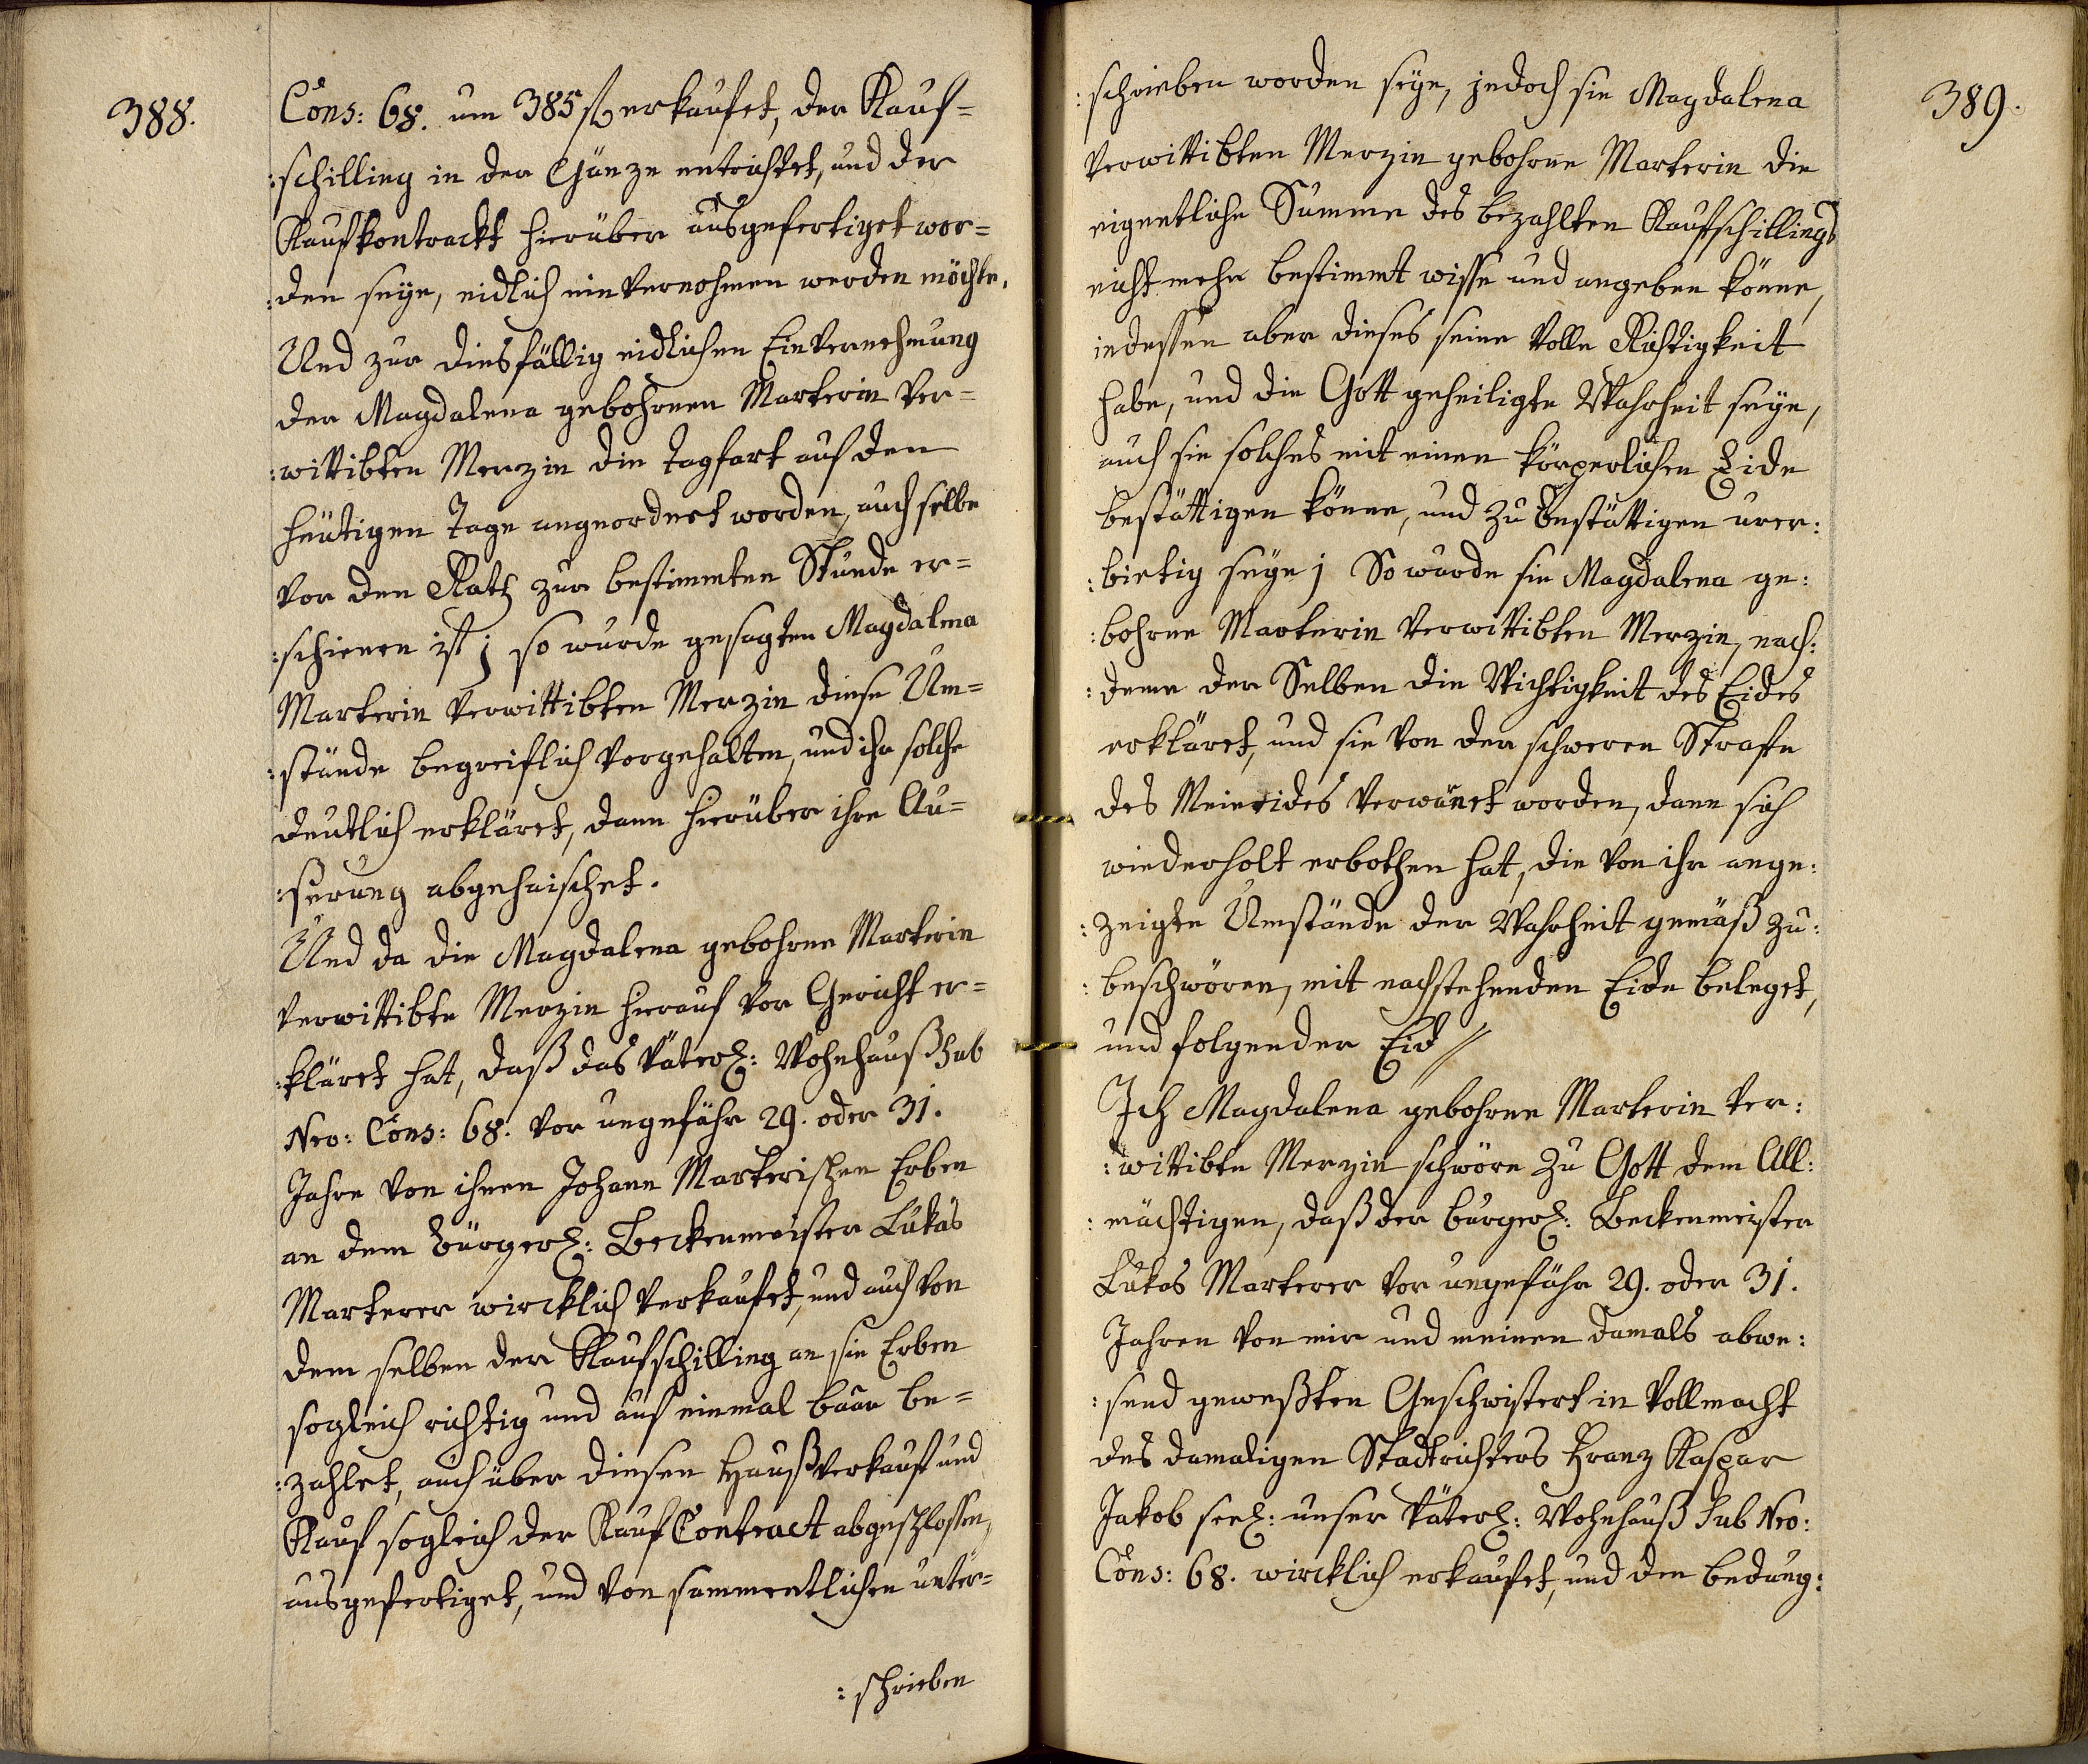 388.
Cons: 68. um 385 fl erkaufet, der Kauf=
:schilling in der Gänze entrichtet, und der
Kaufkontrackt hierüber ausgefertiget wor=
:den seye, eidlich einvernohmen werden möchte.
Und zur diesfällig eidlichen Einvernehmung
der Magdalena gebohrnen Marterin ver=
:wittibten Merzin die tagfart auf den
heütigen Tage angeordnet worden, auch selbe
vor den Rath zur bestimmten Stunde er=
:schienen ist; so wurde gesagten Magdalena
Marterin verwittibten Merzin diese Um=
:stände begreiflich vorgehalten, und ihr solche
deutlich erkläret, dann hierüber ihre Au=
:serung abgeheischet.
Und da die Magdalena gebohrne Marterin
verwittibte Merzin hierauf vor Gericht er=
:kläret hat, daß das väterl: Wohnhauß sub
Nro: Cons: 68. vor ungefähr 29. oder 31.
Jahre von ihnen Johann Marterischen Erben
an dem bürgerl: Beckenmeister Lukas
Marterer wircklich verkaufet, und auch von
dem selben der Kaufschilling an sie Erben
sogleich richtig und auf einmal baar be=
:zahlet, auch über diesen Haußverkauf und
Kauf sogleich der Kauf Contract abgeschlossen,
ausgefertiget, und von sammentlichen unter=
:schrieben
389.
:schrieben worden seye, jedoch sie Magdalena
verwittibten Merzin gebohrne Marterin die
eigentliche Summe des bezahlten Kaufschillings
nicht mehr bestimmt wisse und angeben könne,
indessen aber dieses seine volle Richtigkeit
habe, und die Gott geheiligte Wahrheit seye,
auch sie solches mit einen körperlichen Eide
bestättigen könne, und zu bestättigen urer:
:bietig seye; So wurde sie Magdalena ge:
:bohrne Marterin verwittibten Merzin, nach:
:deme der Selben die Wichtigkeit des Eides
erkläret, und sie von der schweren Strafe
des Meineides verwarnet worden, dann sich
wiederholt erbothen hat, die von ihr ange:
:zeigte Umstände der Wahrheit gemäß zu:
:beschwören, mit nachstehenden Eide beleget,
und folgender Eid //
Ich Magdalena gebohrne Marterin ver:
:wittibte Merzin schwöre zu Gott dem All:
:mächtigen, daß der bürgerl: Beckenmeister
Lukas Marterer vor ungefähr 29. oder 31.
Jahren von mir und meinen damals abwe:
:send geweßten Geschwistert in Vollmacht
des damaligen Stadtrichters Franz Kaspar
Jakob seel: unser väterl: Wohnhauß sub Nro:
Cons: 68. wircklich erkaufet, und den bedung: